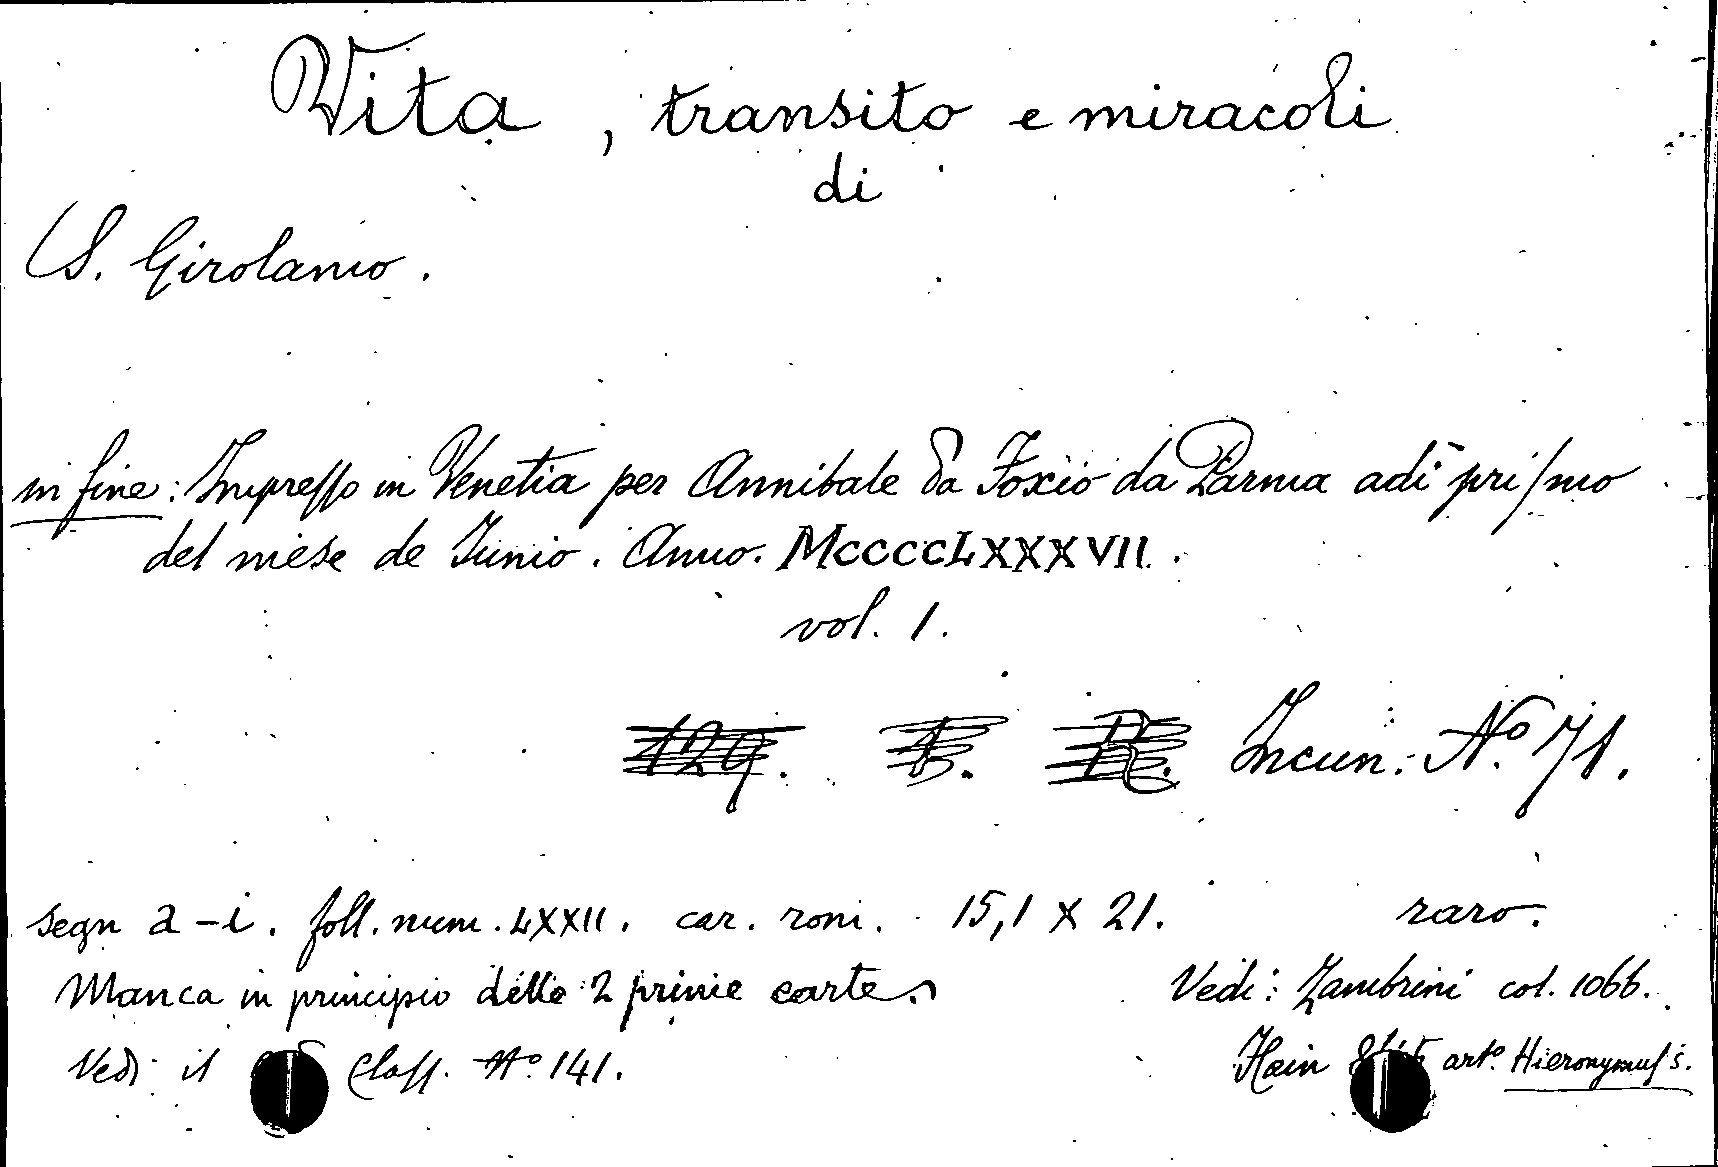 Vita, transito e miracoli
di
S. Girolamo.
in fine: Impresso in Venetia per Annibale da Foxio da Parma adi primo
del mese de Junio. Anno. MCCCCLXXXVII.
vol. 1.
129. B. R. Incun. Nº 71.
segn a-i. foll. num. LXXII. car. rom. 15,1 x 21. raro.
Manca in principio delle 2 prime carte.
Vedi: Zambrini col. 1066.
Vedi il Class. Nº 141.
Hain artº Hieronymus s.